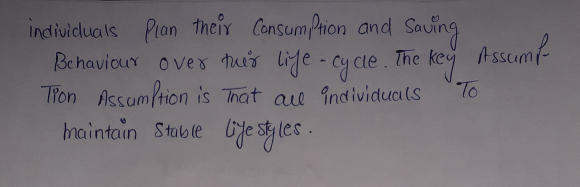 individuals Plan their Consumption and Saving
Behaviour over their life-cycle. The key Assump-
Tion Assumption is That all individuals To
maintain Stable lifestyles.